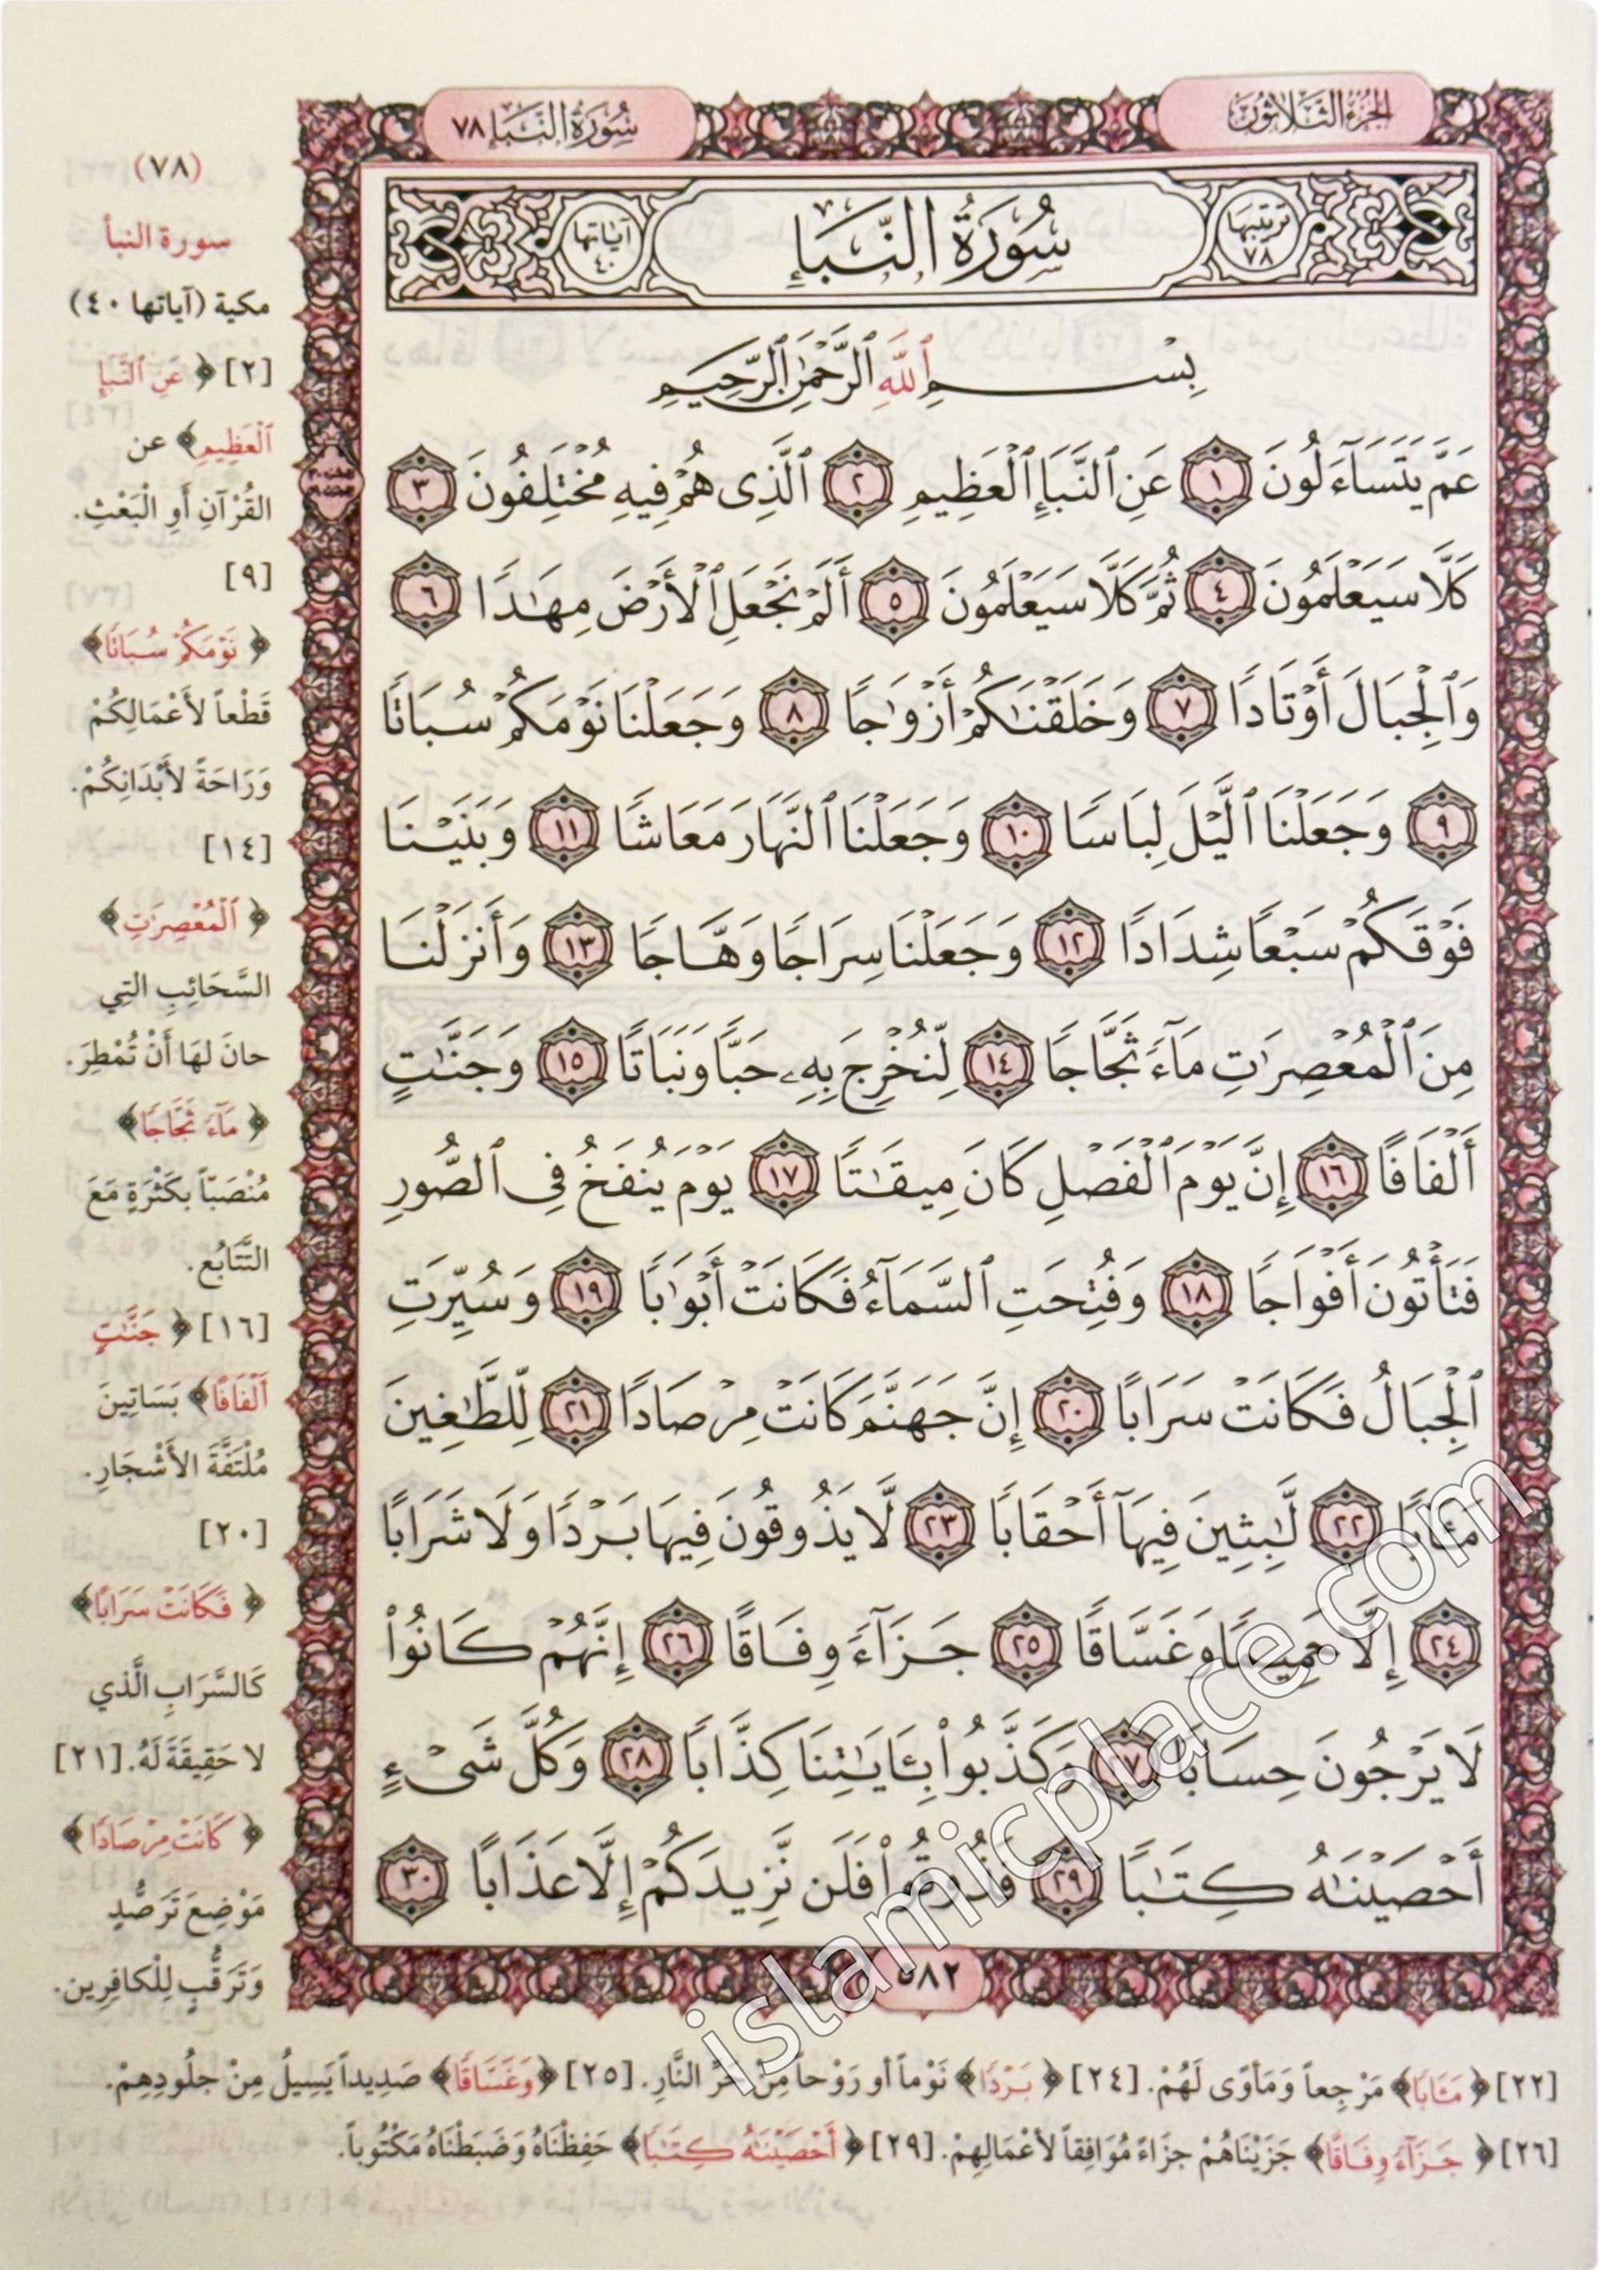 الجزء الثلاثون
سورة النبإ ٧٨
ترتيبها ٧٨
سُورَةُ النَّبَإِ
آياتها ٤٠
بِسْمِ ٱللَّهِ ٱلرَّحْمَٰنِ ٱلرَّحِيمِ
عَمَّ يَتَسَآءَلُونَ ١ عَنِ ٱلنَّبَإِ ٱلْعَظِيمِ ٢ ٱلَّذِى هُمْ فِيهِ مُخْتَلِفُونَ ٣
كَلَّا سَيَعْلَمُونَ ٤ ثُمَّ كَلَّا سَيَعْلَمُونَ ٥ أَلَمْ نَجْعَلِ ٱلْأَرْضَ مِهَٰدًا ٦
وَٱلْجِبَالَ أَوْتَادًا ٧ وَخَلَقْنَٰكُمْ أَزْوَٰجًا ٨ وَجَعَلْنَا نَوْمَكُمْ سُبَاتًا
٩ وَجَعَلْنَا ٱلَّيْلَ لِبَاسًا ١٠ وَجَعَلْنَا ٱلنَّهَارَ مَعَاشًا ١١ وَبَنَيْنَا
فَوْقَكُمْ سَبْعًا شِدَادًا ١٢ وَجَعَلْنَا سِرَاجًا وَهَّاجًا ١٣ وَأَنزَلْنَا
مِنَ ٱلْمُعْصِرَٰتِ مَآءً ثَجَّاجًا ١٤ لِّنُخْرِجَ بِهِۦ حَبًّا وَنَبَاتًا ١٥ وَجَنَّٰتٍ
أَلْفَافًا ١٦ إِنَّ يَوْمَ ٱلْفَصْلِ كَانَ مِيقَٰتًا ١٧ يَوْمَ يُنفَخُ فِى ٱلصُّورِ
فَتَأْتُونَ أَفْوَاجًا ١٨ وَفُتِحَتِ ٱلسَّمَآءُ فَكَانَتْ أَبْوَٰبًا ١٩ وَسُيِّرَتِ
ٱلْجِبَالُ فَكَانَتْ سَرَابًا ٢٠ إِنَّ جَهَنَّمَ كَانَتْ مِرْصَادًا ٢١ لِّلطَّٰغِينَ
مَـَٔابًا ٢٢ لَّٰبِثِينَ فِيهَآ أَحْقَابًا ٢٣ لَّا يَذُوقُونَ فِيهَا بَرْدًا وَلَا شَرَابًا
٢٤ إِلَّا حَمِيمًا وَغَسَّاقًا ٢٥ جَزَآءً وِفَاقًا ٢٦ إِنَّهُمْ كَانُوا۟
لَا يَرْجُونَ حِسَابًا ٢٧ وَكَذَّبُوا۟ بِـَٔايَٰتِنَا كِذَّابًا ٢٨ وَكُلَّ شَىْءٍ
أَحْصَيْنَٰهُ كِتَٰبًا ٢٩ فَذُوقُوا۟ فَلَن نَّزِيدَكُمْ إِلَّا عَذَابًا ٣٠
٥٨٢
(٧٨)
سورة النبأ
مكية (آياتها ٤٠)
[٢] ﴿عَنِ ٱلنَّبَإِ
ٱلْعَظِيمِ﴾ عن
القُرْآنِ أَوِ الْبَعْثِ.
[٩]
﴿نَوْمَكُمْ سُبَاتًا﴾
قَطْعاً لأَعْمَالِكُمْ
وَرَاحَةً لأَبْدَانِكُمْ.
[١٤]
﴿ٱلْمُعْصِرَٰتِ﴾
السَّحَائِبِ التِي
حانَ لهَا أَنْ تُمْطِرَ.
﴿مَآءً ثَجَّاجًا﴾
مُنْصَبّاً بكَثْرَةٍ مَعَ
التَّتَابُعِ.
[١٦] ﴿جَنَّٰتٍ
أَلْفَافًا﴾ بَسَاتِينَ
مُلْتَفَّةَ الأَشْجَارِ.
[٢٠]
﴿فَكَانَتْ سَرَابًا﴾
كَالسَّرَابِ الَّذي
لا حَقِيقَةَ لَهُ. [٢١]
﴿كَانَتْ مِرْصَادًا﴾
مَوْضِعَ تَرَصُّدٍ
وَتَرَقُّبٍ لِلْكافِرِين.
[٢٢] ﴿مَـَٔابًا﴾ مَرْجِعاً وَمَأوًى لَهُمْ. [٢٤] ﴿بَرْدًا﴾ نَوْماً أو رَوْحاً مِنْ حَرِّ النَّارِ. [٢٥] ﴿وَغَسَّاقًا﴾ صَدِيداً يَسِيلُ مِنْ جلُودِهِمْ.
[٢٦] ﴿جَزَآءً وِفَاقًا﴾ جَزَيْنَاهُمْ جزَاءً مُوَافِقاً لأعْمَالِهِمْ. [٢٩] ﴿أَحْصَيْنَٰهُ كِتَٰبًا﴾ حَفِظْنَاهُ وَضَبَطْنَاهُ مَكْتُوباً.
islamicplace.com